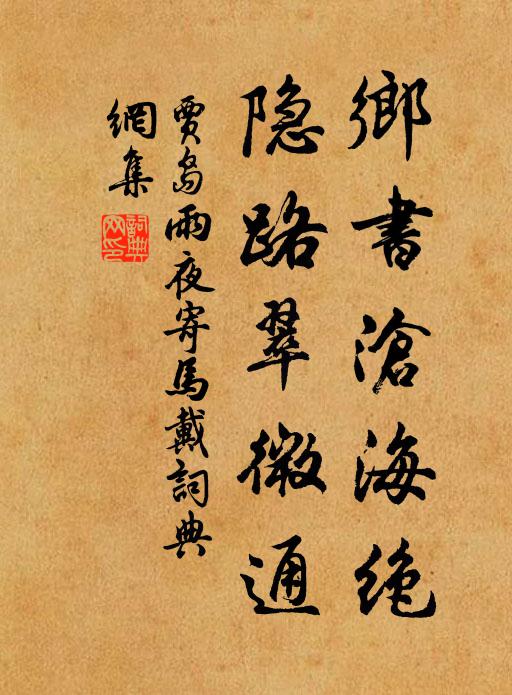 鄉書滄海絶
隐路翠微通
賈島雨夜寄馬戴詞典
網集
詞典
网印